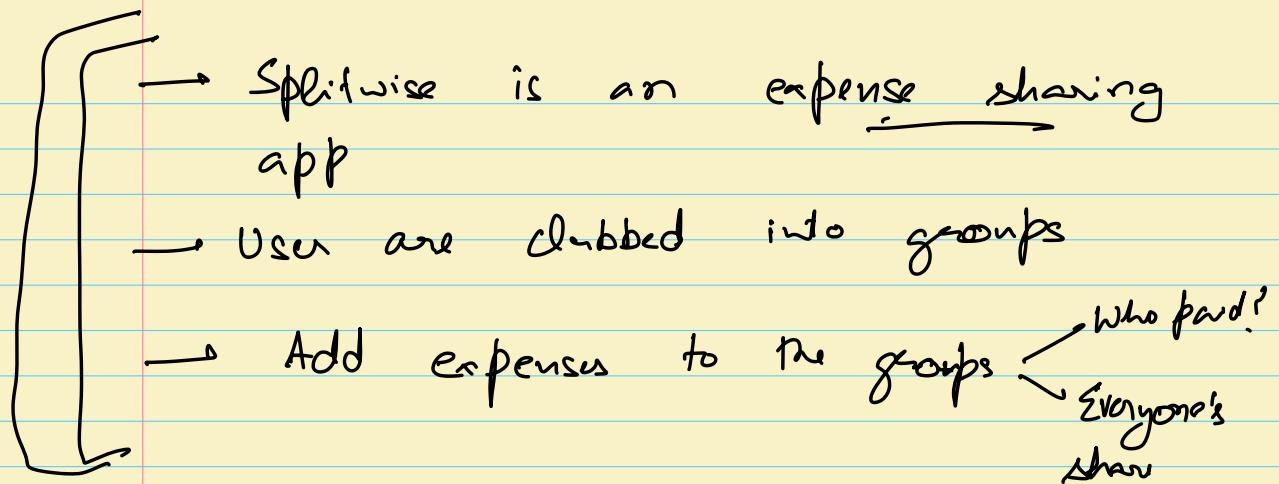 → Splitwise is an expense sharing
app
→ User are clubbed into groups
→ Add expenses to the groups
Who paid?
Everyone's
share